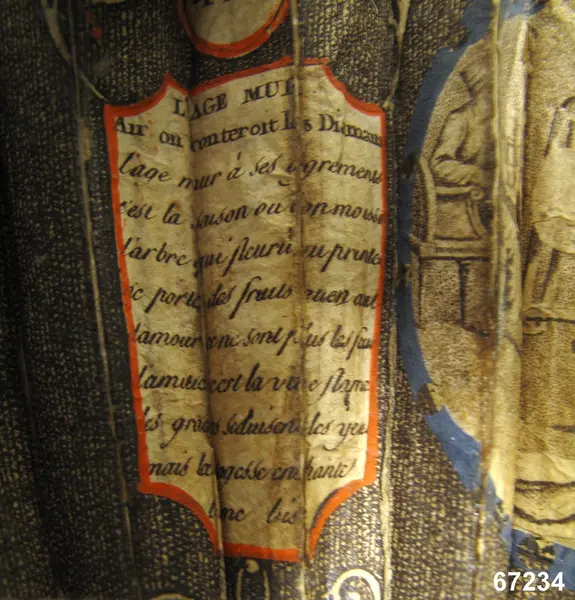 L'AGE MUR
Air on conteroit les Diamans
l'age mur à ses agrements
c'est la saison ou l'on moisso
l'arbre qui fleurit au printe
ne porte des fruits quen aut
l'amour ce ne sont plus les
l'amitie cest la vive flame
les graces seduisent les yeu
mais la sagesse enchante
une bis
67234